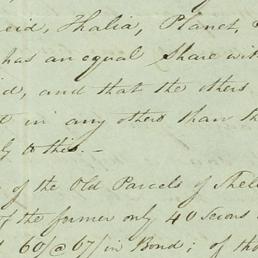 eid, Thalia, Planet,
has an equal Share wit
id, and that the others
t in any others than th
ly to this. —
of the Old Parcels of Shel
of the former only 40 Serons
60/@67/ in Bond; of tho